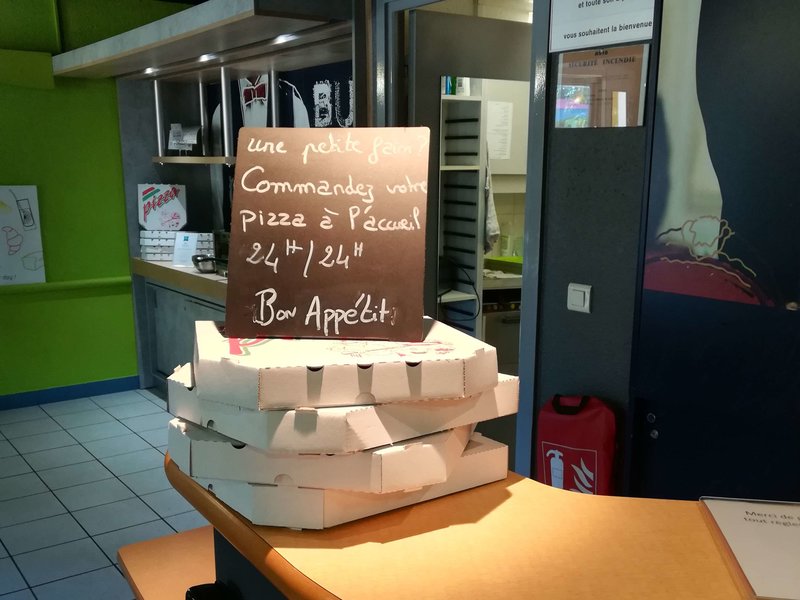 et toute son
vous souhaitent la bienvenue
SÉCURITÉ INCENDIE
BU
une petite faim?
Commandez votre
pizza à l'accueil
24H/24H
Bon Appétit.
pizza
Merci de
tout règle